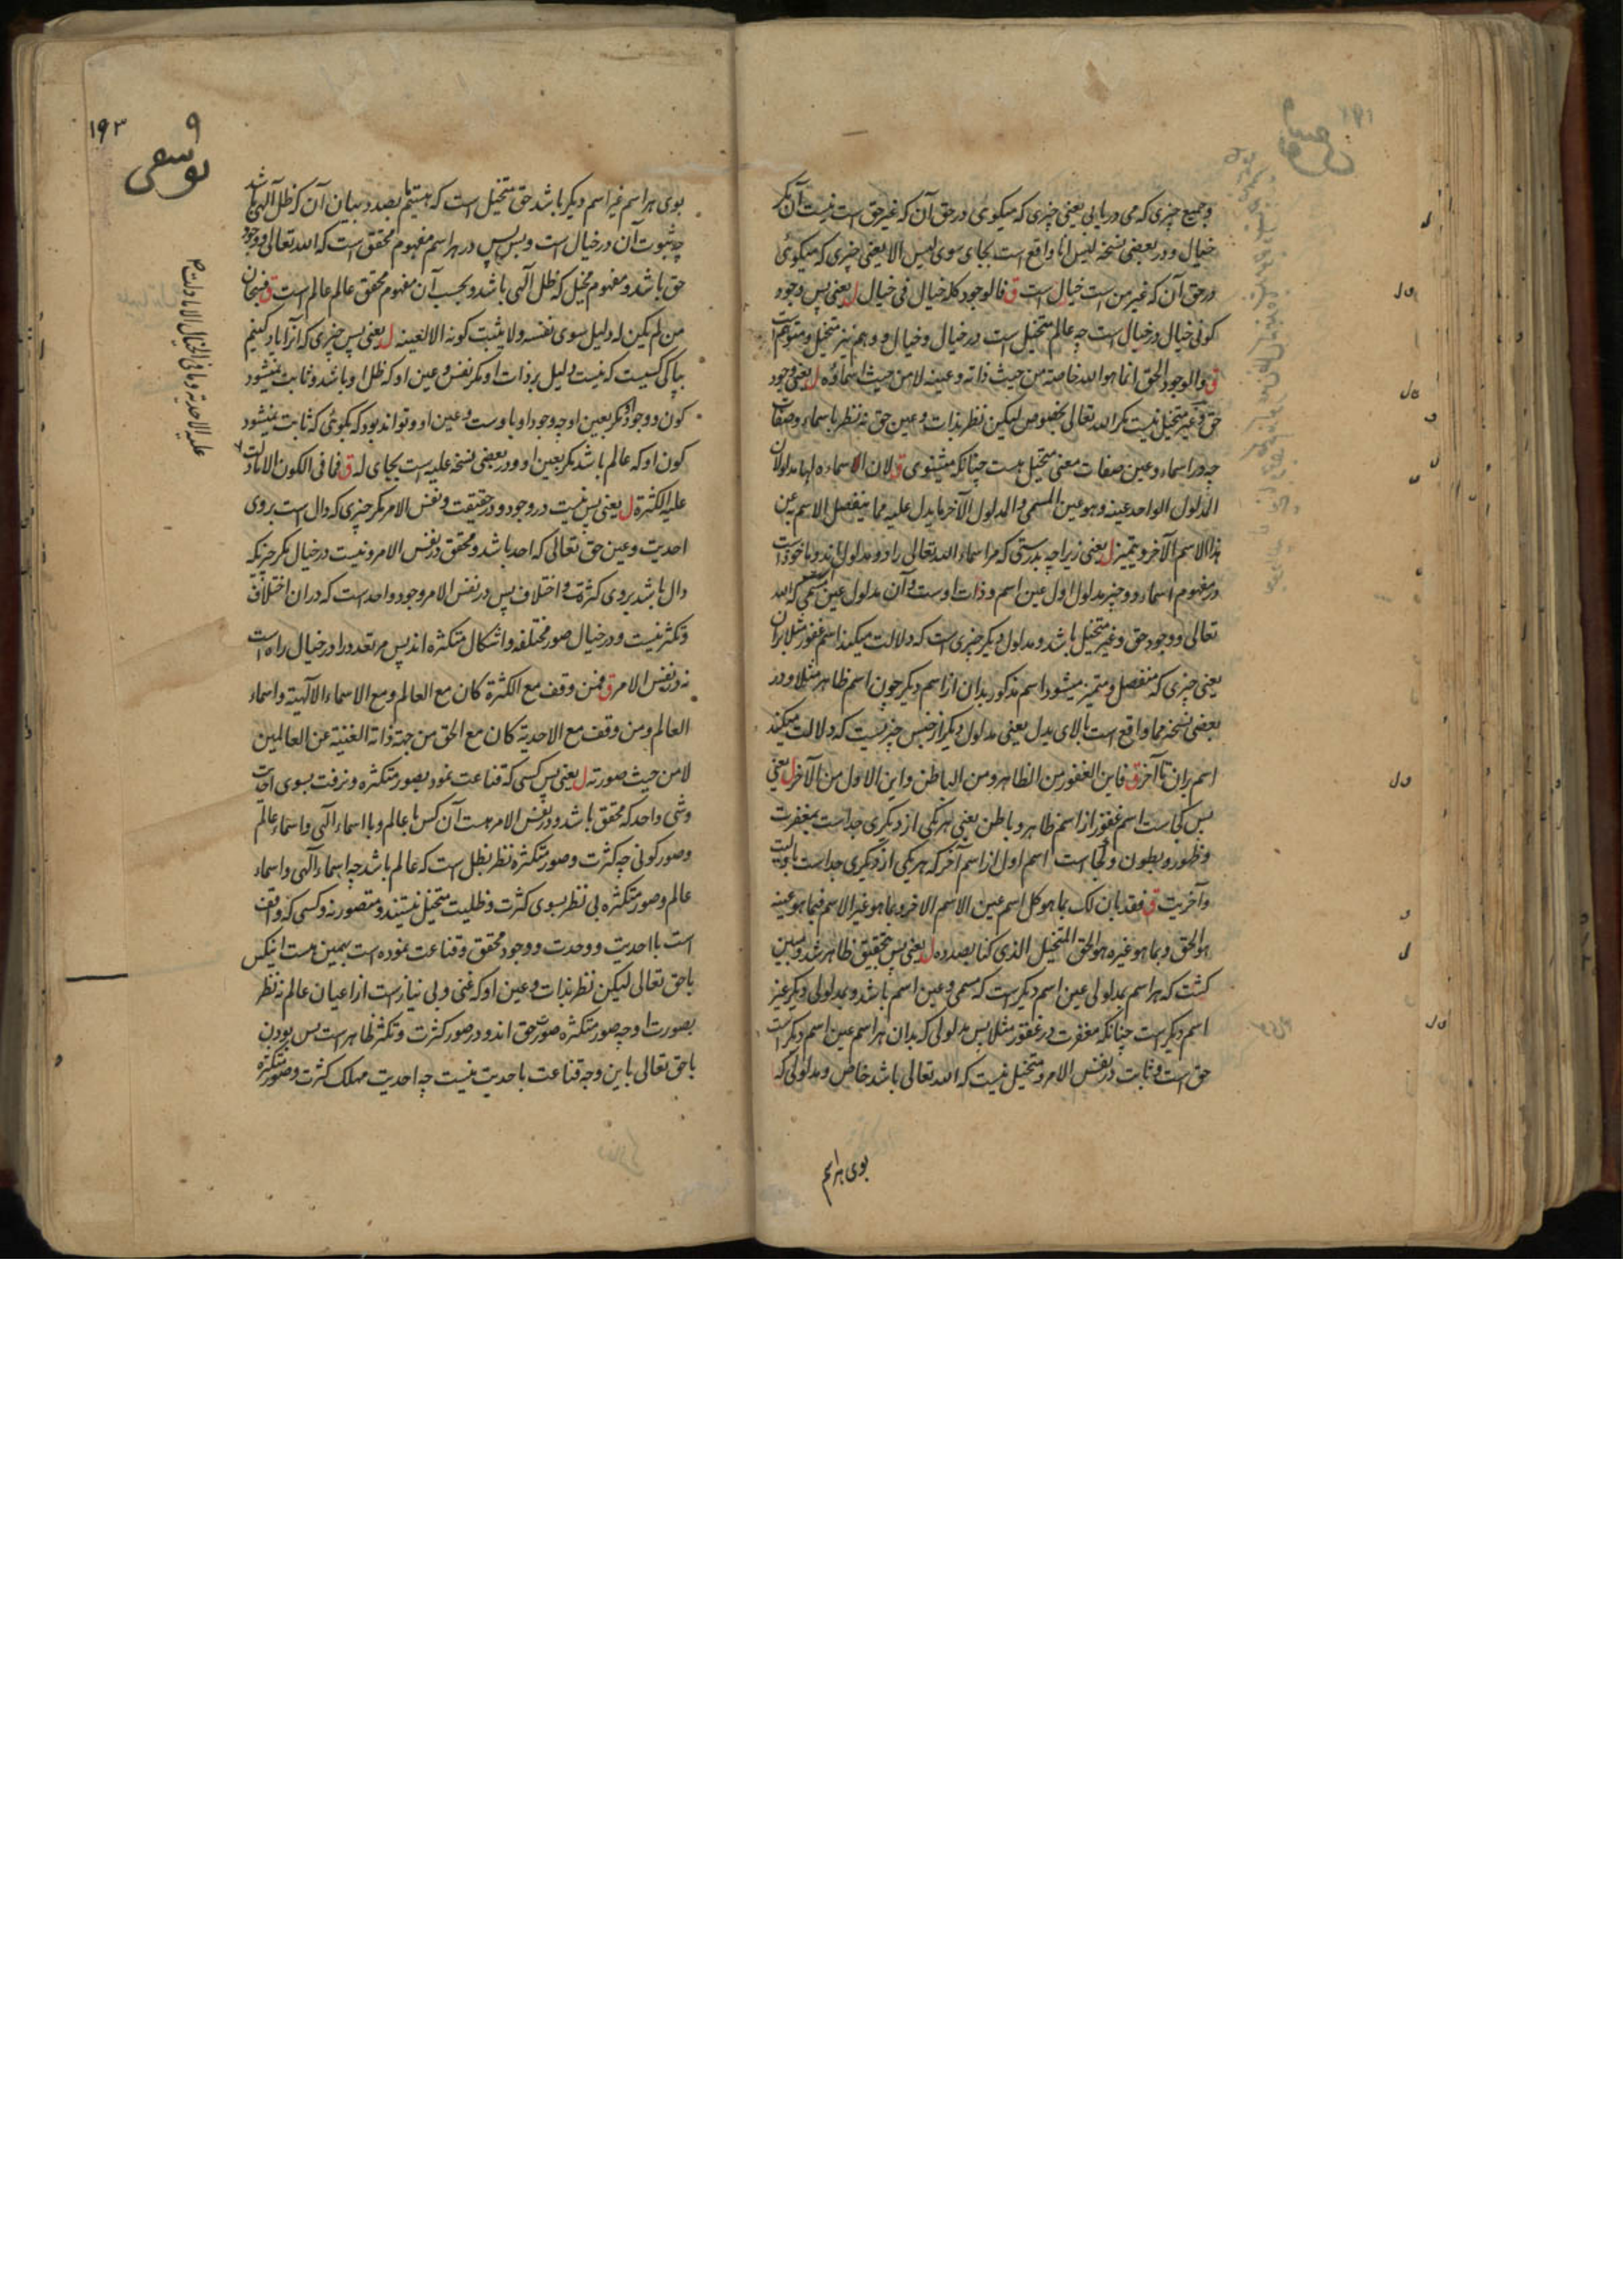 وجمیع چیزی که می دریابی یعنی چیزی که میکوئی در حق آن که غیر حق است نیست آن مکر
خیال و در بعضی نسخه لیس انا واقع است بجای سوی لیس الا یعنی چیزی که میکوئی
در حق آن که غیر من است خیال است ق فالوجود کله خیال فی خیال ل یعنی پس وجود
کونی خیال در خیال است چه عالم متخیل است در خیال و خیال و وهم نیز متخیل و متوهم است
ق والوجود الحق انما هو الله خاصة من حیث ذاته وعینه لا من حیث اسماؤه ل یعنی وجود
حق و غیر متخیل نیست مکر الله تعالی بخصوص لیکن نظر بذات و عین حق نه نظر باسماء وصفات
چه در اسماء و عین صفات معنی متخیل هست چنانکه میشنوی ق لان الاسماءه لها مدلولان
المدلول الواحد عینه وهو عین المسمی والمدلول الآخر ما یدل علیه مما ینفصل الاسم عن
هذا الاسم الآخر ویتمیز ل یعنی زیرا چه بدرستی که مر اسماء الله تعالی را دو مدلول اند و ماخوذ است
در مفهوم اسماء دو چیز مدلول اول عین اسم و ذات اوست و آن مدلول عین مسمی که الله
تعالی و وجود حق و غیر متخیل باشد و مدلول دیکر چیزی است که دلالت میکند اسم غفور مثلا بران
یعنی چیزی که منفصل و متمیز میشود اسم مذکور بدان از اسم دیکر چون اسم ظاهر مثلا و در
بعضی نسخه مما واقع است بالای یدل یعنی مدلول دیکر از جنس چیزیست که دلالت میکند
اسم بران تا آخر ق فاین الغفور من الظاهر ومن الباطن واین الاول من الآخر ل یعنی
پس کجاست اسم غفور از اسم ظاهر و باطن یعنی هر یکی از دیکری جداست بمغفرت
و ظهور و بطون و کجاست اسم اول از اسم آخر که هر یکی از دیکری جداست باولیت
و آخریت ق فقد بان لک بما هو کل اسم عین الاسم الاخر وبما هو غیر الاسم فبما هو عینه
هو الحق وبما هو غیره هو الحق المتخیل الذی کنا بصدده ل یعنی پس بتحقیق ظاهر شد و مبین
کشت که هر اسم بمدلولی عین اسم دیکر است که مسمی و عین اسم باشد و بمدلولی دیکر غیر
اسم دیکر است چنانکه مغفرت در غفور مثلا پس مدلولی که بدان هر اسم عین اسم دیکر است
حق است و ثابت در نفس الامر و متخیل نیست که الله تعالی باشد خاص و مدلولی که
بوی هر اسم
۱۹۳
یوسفی
بوی هر اسم غیر اسم دیکر باشد حق متخیل است که هستیم ما بصدد بیان آن که ظل آلهی باشد
چه ثبوت آن در خیال است و بس پس در هر اسم مفهوم محقق است که الله تعالی و وجود
حق باشد و مفهوم مخیل که ظل آلهی باشد و بحسب آن مفهوم محقق عالم عالم است ق فسبحان
من لم یکن له دلیل سوی نفسه ولا یثبت کونه الا لعینه ل یعنی پس چیزی که آنرا یاد کنیم
بپاکی کسیست که نیست دلیل بر ذات او مکر نفس و عین او که ظل او باشد و ثابت نمیشود
کون و وجود او مکر بعین او چه وجود او باوست و عین او و تواند بود که بکوئی که ثابت نمیشود
کون او که عالم باشد مکر بعین او و در بعضی نسخه علیه است بجای له ق فما فی الکون الا ما دلت
علیه الکثرة ل یعنی پس نیست در وجود و در حقیقت و نفس الامر مکر چیزی که دال است بر وی
احدیت و عین حق تعالی که احد باشد و محقق در نفس الامر و نیست در خیال مکر چیزیکه
دال باشد بر وی کثرة و اختلاف پس در نفس الامر وجود واحد است که در ان اختلاف
و تکثر نیست و در خیال صور مختلفه و اشکال متکثره اند پس مر تعدد را در خیال راه است
نه در نفس الامر ق فمن وقف مع الکثرة کان مع العالم ومع الاسماء الآلهیة واسماء
العالم ومن وقف مع الاحدیة کان مع الحق من جهة ذاته الغنیة عن العالمین
لا من حیث صورته ل یعنی پس کسی که قناعت نمود بصور متکثره و نرفت بسوی احدیت
و شی واحد که محقق باشد در نفس الامر هست آن کس با عالم و با اسماء آلهی و اسماء عالم
و صور کونی چه کثرت و صور متکثره نظر بظل است که عالم باشد چه اسماء آلهی و اسماء
عالم و صور متکثره بی نظر بسوی کثرت و ظلیت متخیل نیستند و متصور نه و کسی که واقف
است با احدیت و وحدت و وجود محقق و قناعت نموده است بهمین هست اینکس
با حق تعالی لیکن نظر بذات و عین او که غنی و بی نیاز است از اعیان عالم نه نظر
بصورت او چه صور متکثره صورت حق اند و در صور کثرت و تکثر ظاهر است پس بودن
با حق تعالی باین وجه قناعت باحدیت نیست چه احدیت مهلک کثرت و صور متکثره
علیه الاحدیة وما فی الخیال الا ما دلت